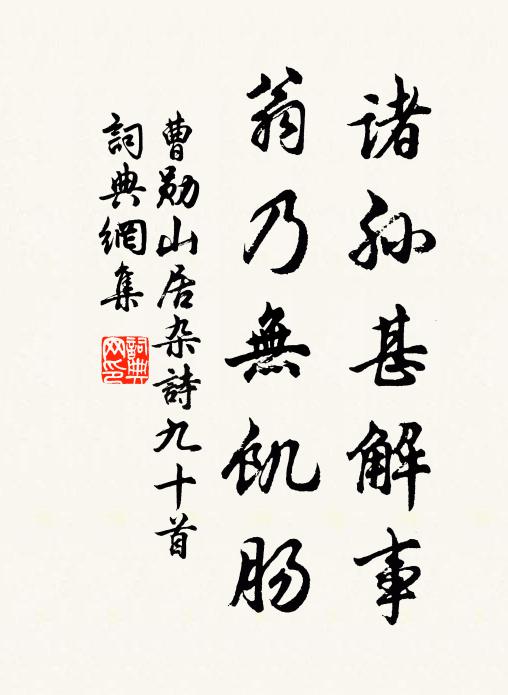 諸孙甚解事
翁乃無飢肠
曹勋山居杂詩九十首
詞典網集
詞典
网印